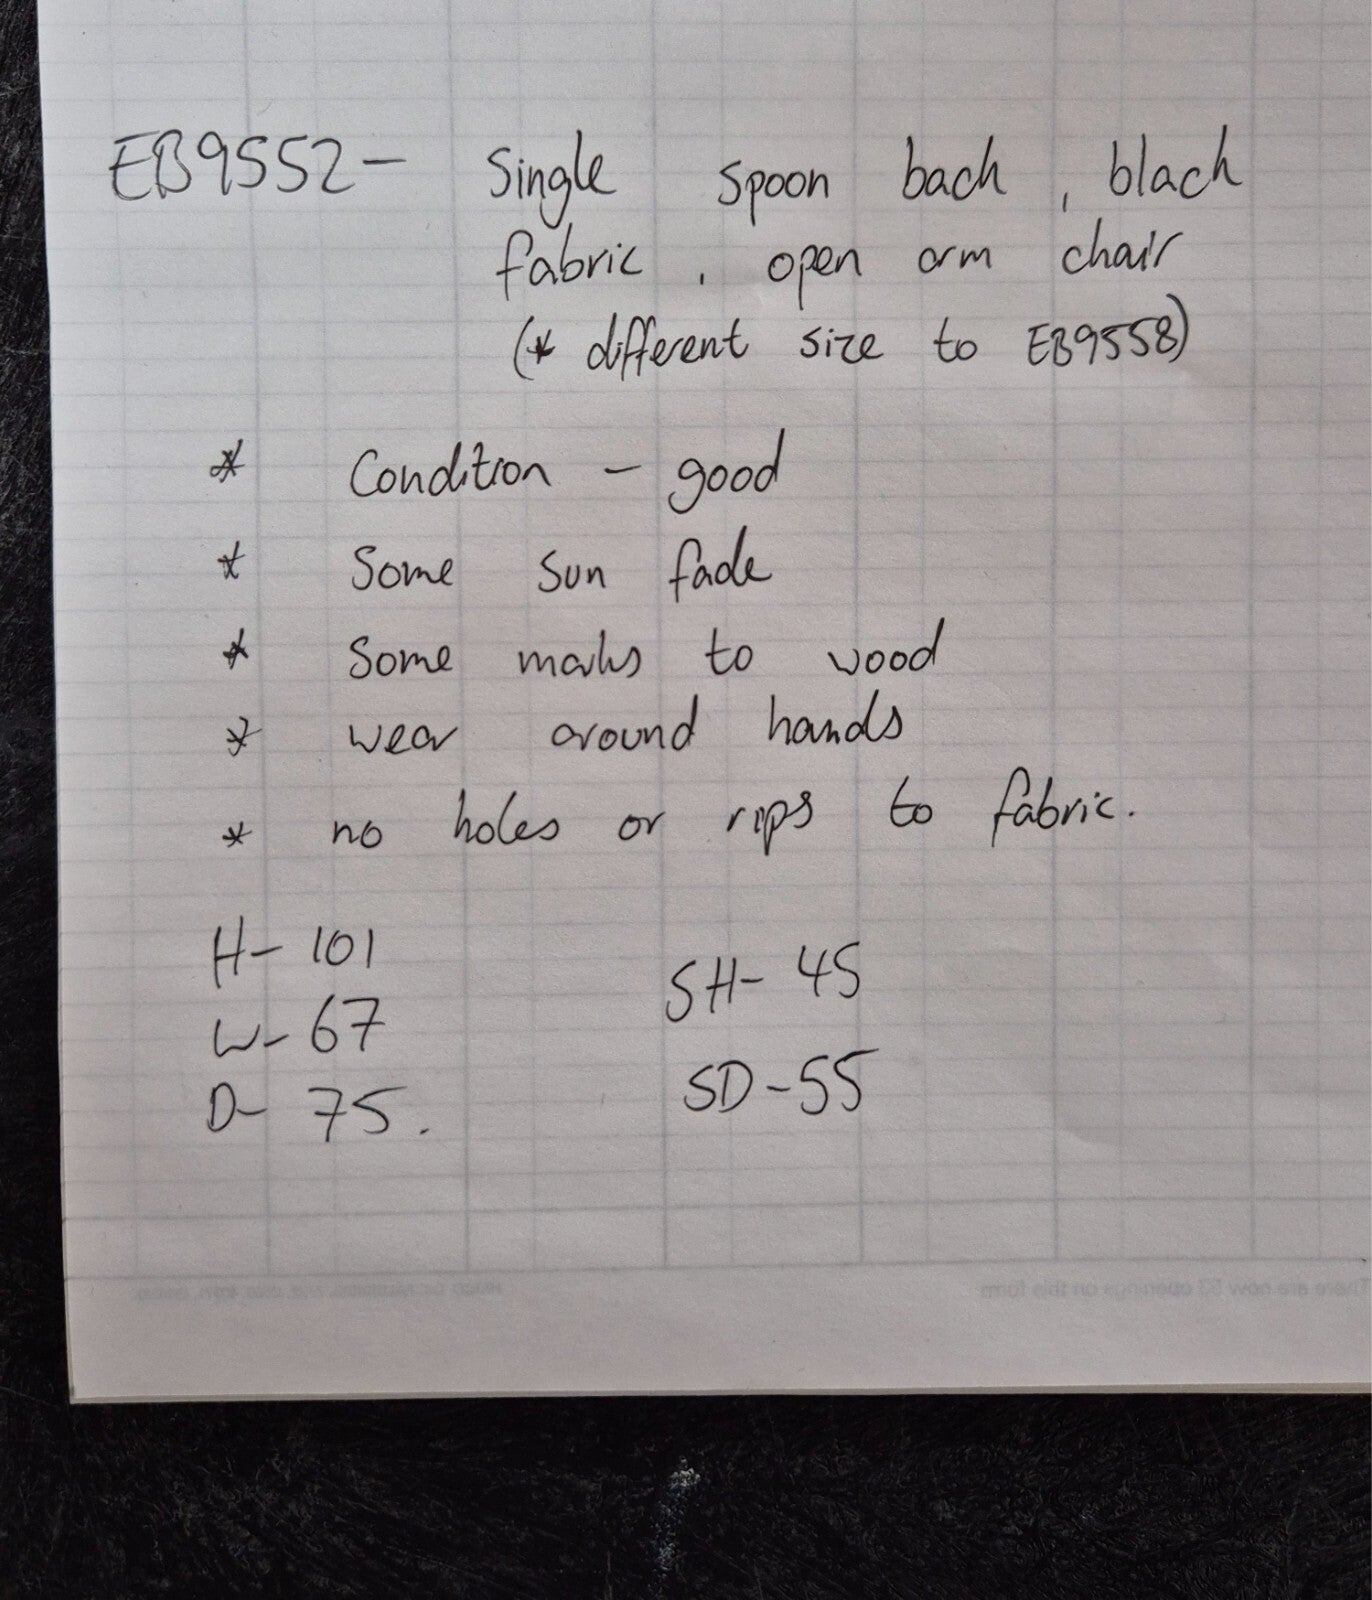 EB9552 - Single spoon back, black
fabric, open arm chair
(* different size to EB9558)
* Condition - good
* Some sun fade
* Some marks to wood
* wear around hands
* no holes or rips to fabric.
H- 101
W- 67
D- 75.
SH- 45
SD- 55
There are now 53 openings on this form